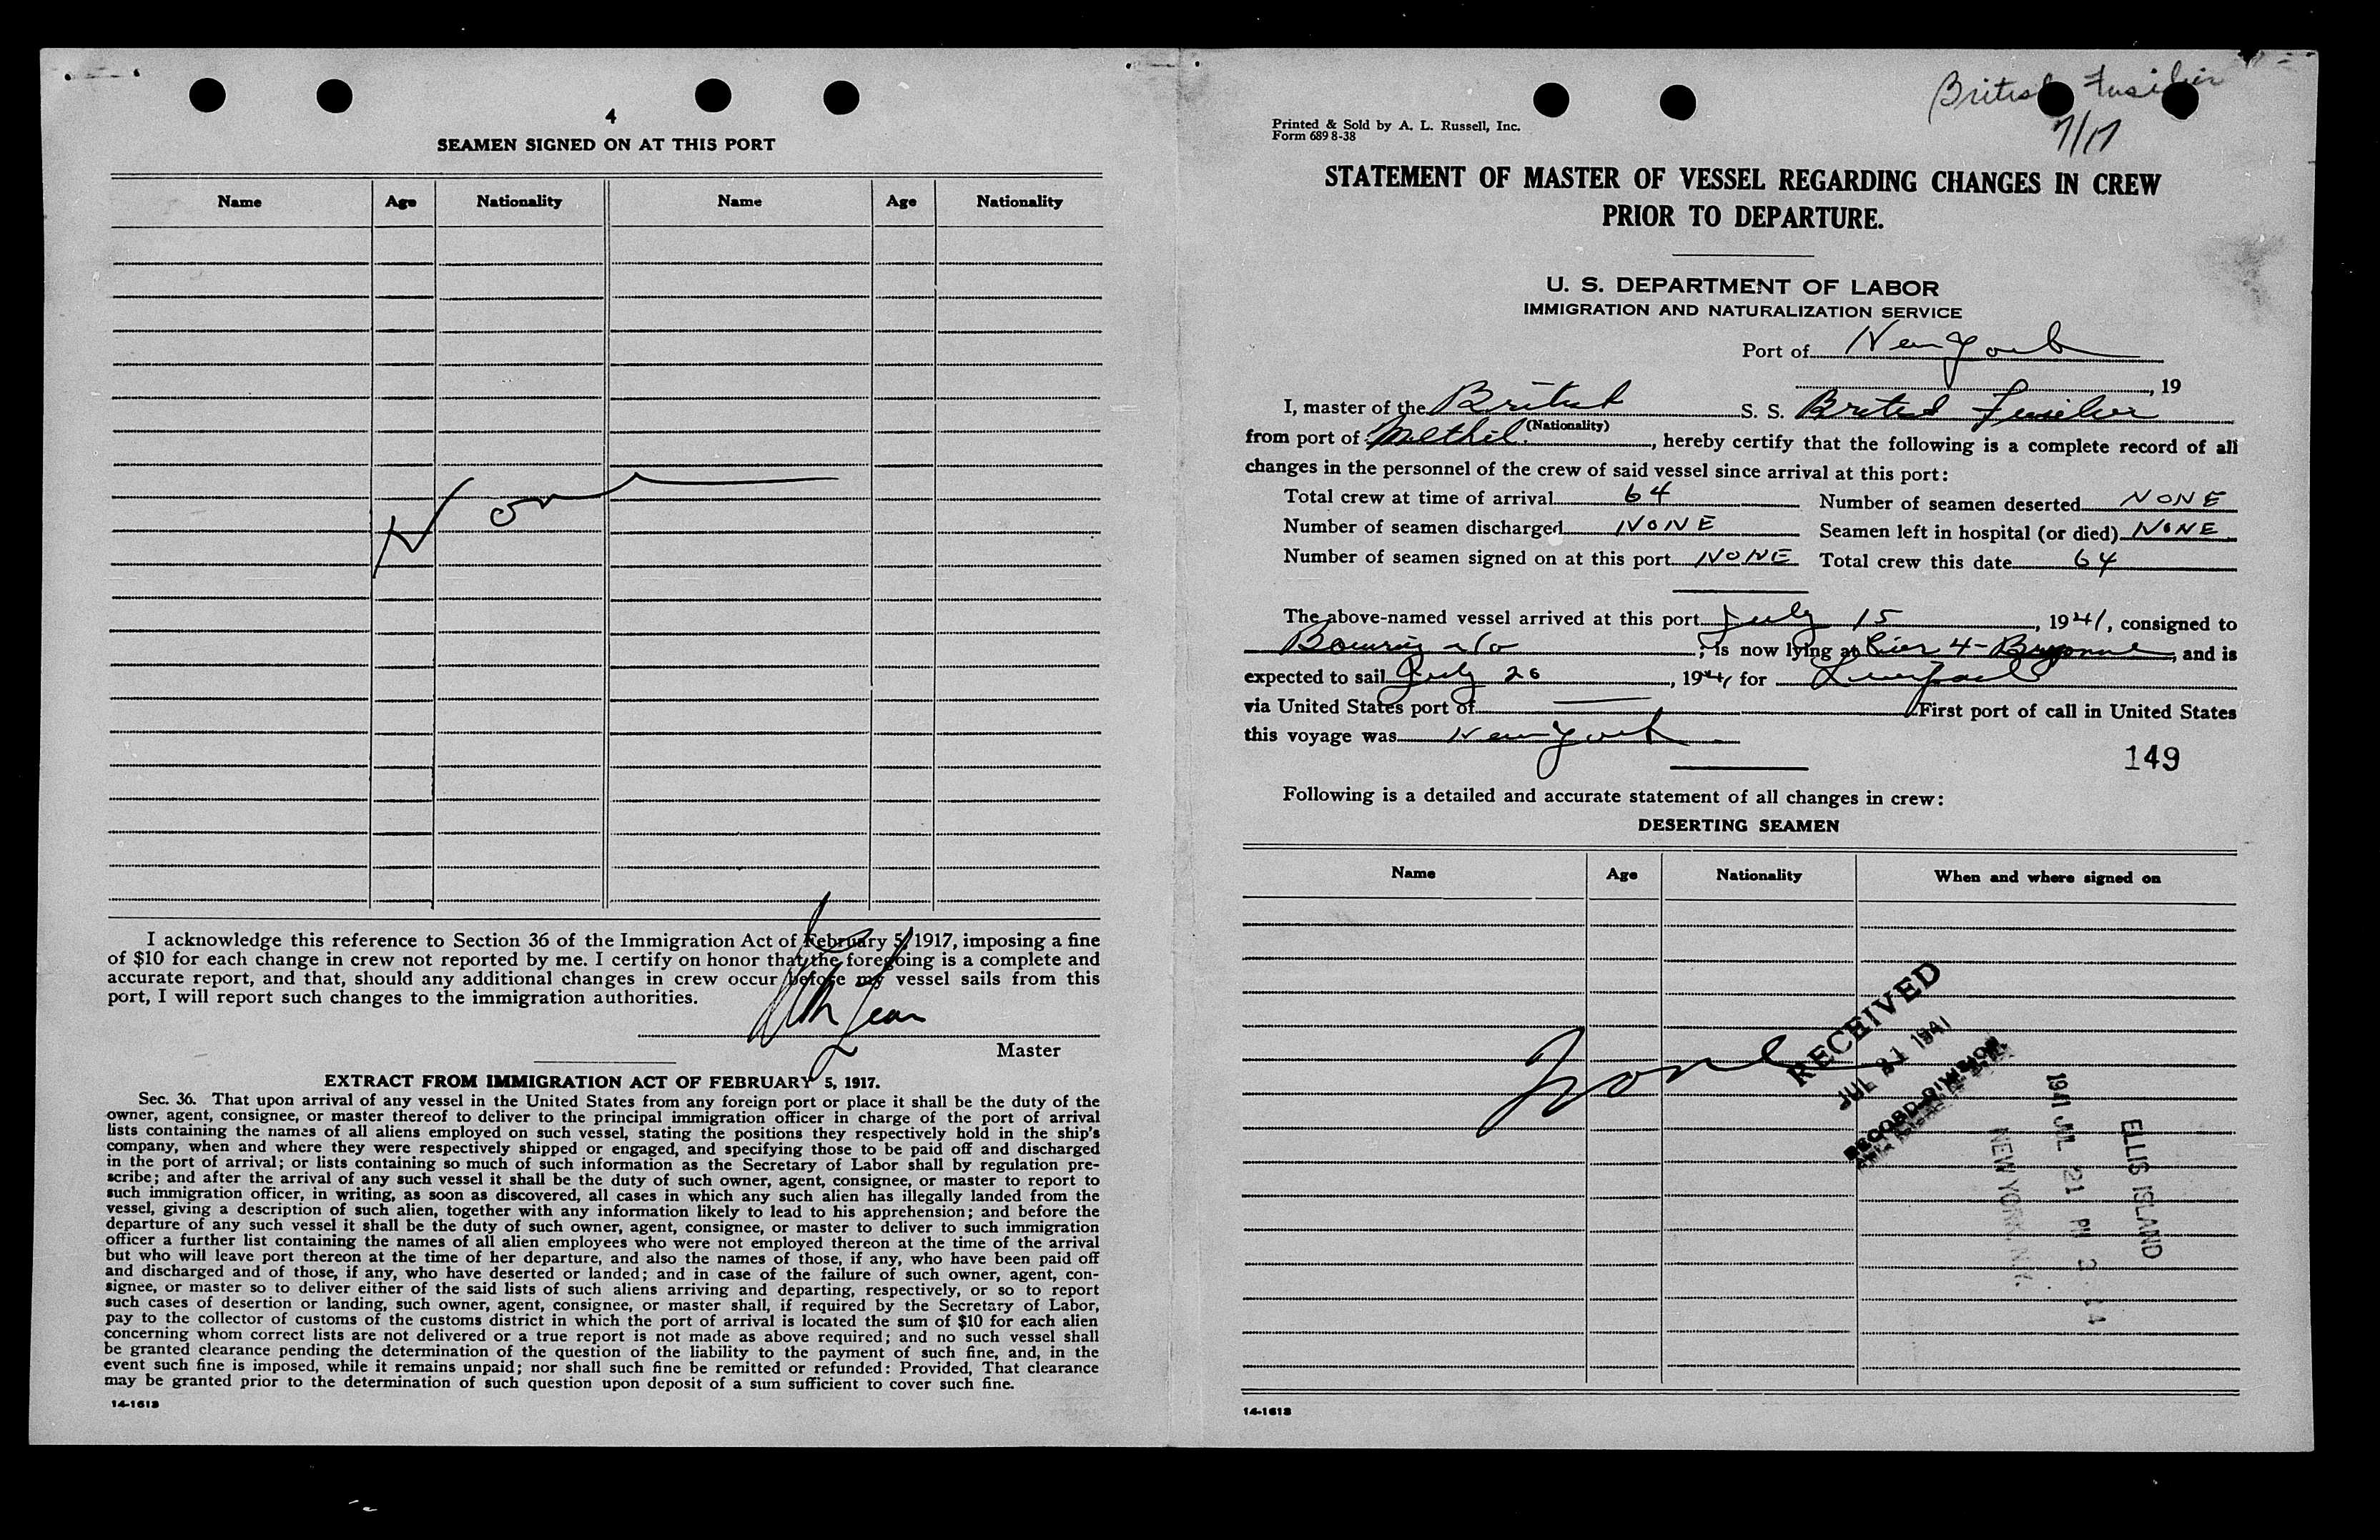 4
SEAMEN SIGNED ON AT THIS PORT
Name Age Nationality Name Age Nationality
None
I acknowledge this reference to Section 36 of the Immigration Act of February 5, 1917, imposing a fine
of $10 for each change in crew not reported by me. I certify on honor that the foregoing is a complete and
accurate report, and that, should any additional changes in crew occur before my vessel sails from this
port, I will report such changes to the immigration authorities.
Master
EXTRACT FROM IMMIGRATION ACT OF FEBRUARY 5, 1917.
Sec. 36. That upon arrival of any vessel in the United States from any foreign port or place it shall be the duty of the
owner, agent, consignee, or master thereof to deliver to the principal immigration officer in charge of the port of arrival
lists containing the names of all aliens employed on such vessel, stating the positions they respectively hold in the ship's
company, when and where they were respectively shipped or engaged, and specifying those to be paid off and discharged
in the port of arrival; or lists containing so much of such information as the Secretary of Labor shall by regulation pre-
scribe; and after the arrival of any such vessel it shall be the duty of such owner, agent, consignee, or master to report to
such immigration officer, in writing, as soon as discovered, all cases in which any such alien has illegally landed from the
vessel, giving a description of such alien, together with any information likely to lead to his apprehension; and before the
departure of any such vessel it shall be the duty of such owner, agent, consignee, or master to deliver to such immigration
officer a further list containing the names of all alien employees who were not employed thereon at the time of the arrival
but who will leave port thereon at the time of her departure, and also the names of those, if any, who have been paid off
and discharged and of those, if any, who have deserted or landed; and in case of the failure of such owner, agent, con-
signee, or master so to deliver either of the said lists of such aliens arriving and departing, respectively, or so to report
such cases of desertion or landing, such owner, agent, consignee, or master shall, if required by the Secretary of Labor,
pay to the collector of customs of the customs district in which the port of arrival is located the sum of $10 for each alien
concerning whom correct lists are not delivered or a true report is not made as above required; and no such vessel shall
be granted clearance pending the determination of the question of the liability to the payment of such fine, and, in the
event such fine is imposed, while it remains unpaid; nor shall such fine be remitted or refunded: Provided, That clearance
may be granted prior to the determination of such question upon deposit of a sum sufficient to cover such fine.
14-1613
British Fusilier
7/17
Printed & Sold by A. L. Russell, Inc.
Form 689 8-38
STATEMENT OF MASTER OF VESSEL REGARDING CHANGES IN CREW
PRIOR TO DEPARTURE.
U. S. DEPARTMENT OF LABOR
IMMIGRATION AND NATURALIZATION SERVICE
Port of New York
, 19
I, master of the British S. S. British Fusilier
(Nationality)
from port of Methil, hereby certify that the following is a complete record of all
changes in the personnel of the crew of said vessel since arrival at this port:
Total crew at time of arrival 64 Number of seamen deserted NONE
Number of seamen discharged NONE Seamen left in hospital (or died) NONE
Number of seamen signed on at this port NONE Total crew this date 64
The above-named vessel arrived at this port July 15, 1941, consigned to
Bowring & Co; is now lying at Pier 4 - Bayonne, and is
expected to sail July 26, 1941 for Liverpool
via United States port of First port of call in United States
this voyage was New York
149
Following is a detailed and accurate statement of all changes in crew:
DESERTING SEAMEN
Name Age Nationality When and where signed on
None
RECEIVED
JUL 21 1941
RECORD DIVISION
ELLIS ISLAND
1941 JUL 21 PM
NEW YORK, N.Y.
14-1613